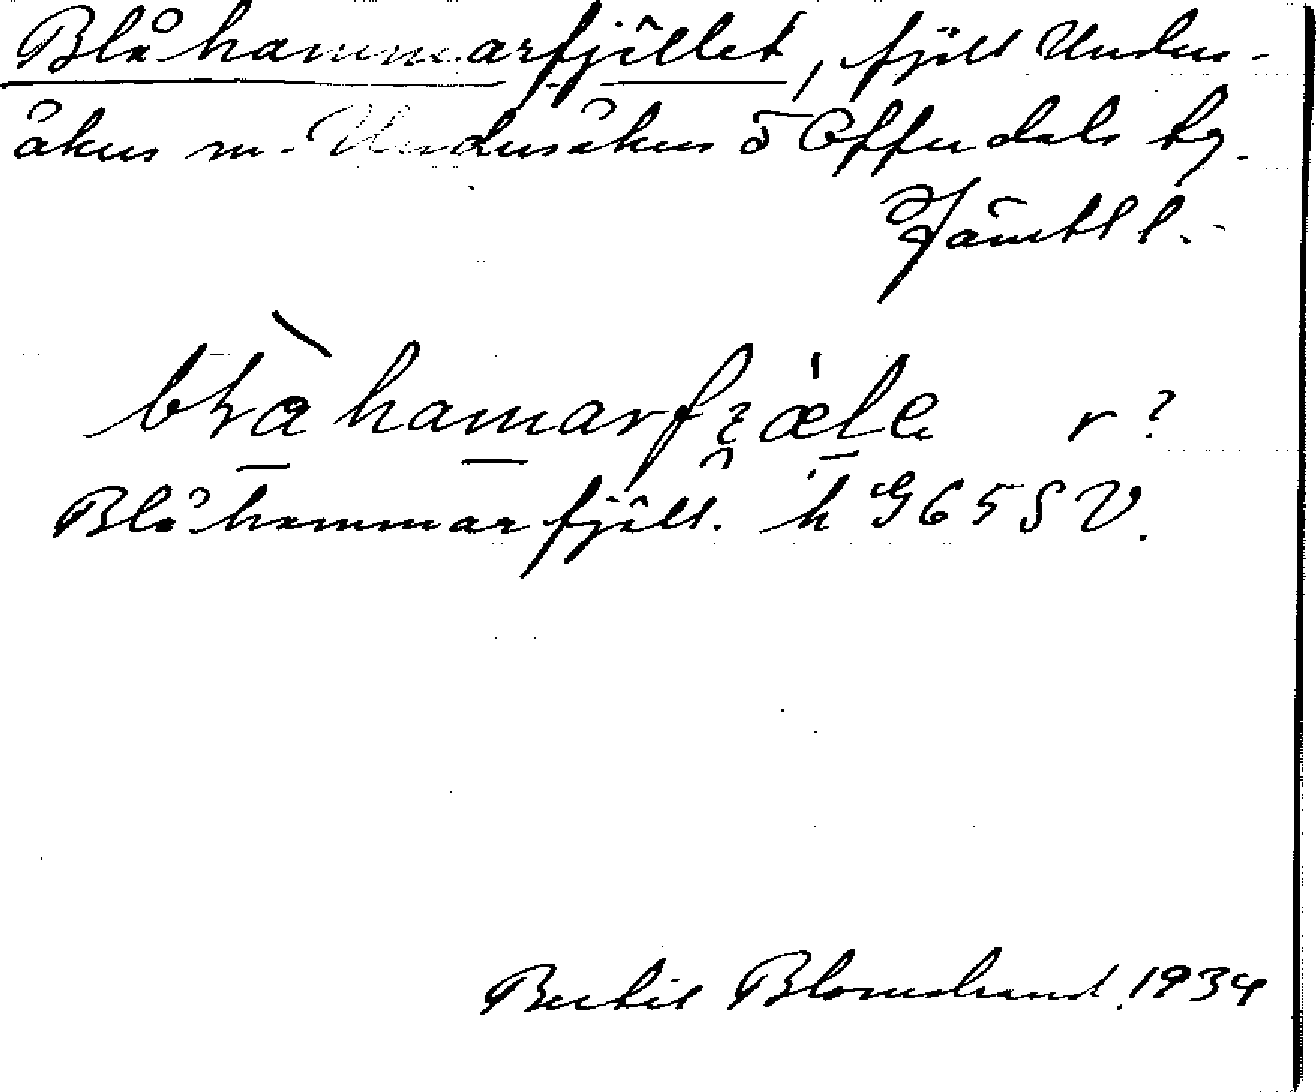 Blåhammarfjället, fjäll Unders-
åkers sn. Undersåkers o Offerdals tg.
Jämtl l.
blåhamarfjæle r?
Blåhammarfjäll. k G65SV.
Bertil Blomstrand. 1934